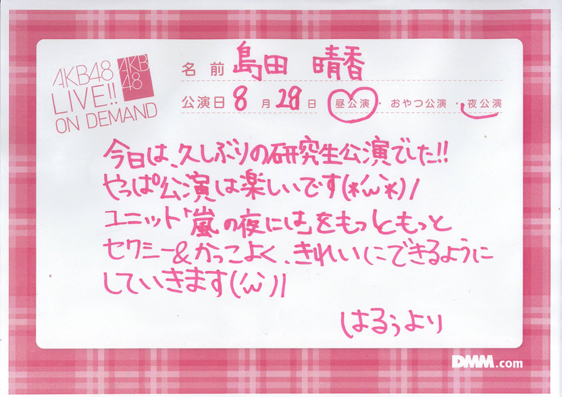 AKB48
LIVE!!
ON DEMAND
AKB
48
名前 島田 晴香
公演日 8月29日 昼公演・おやつ公演・夜公演
今日は、久しぶりの研究生公演でした!!
やっぱ公演は楽しいです(*´ω`*)ノ
ユニット「嵐の夜には」をもっともっと
セクシー&かっこよく、きれいにできるように
していきます(´ω`)ノ
はるぅより
DMM.com